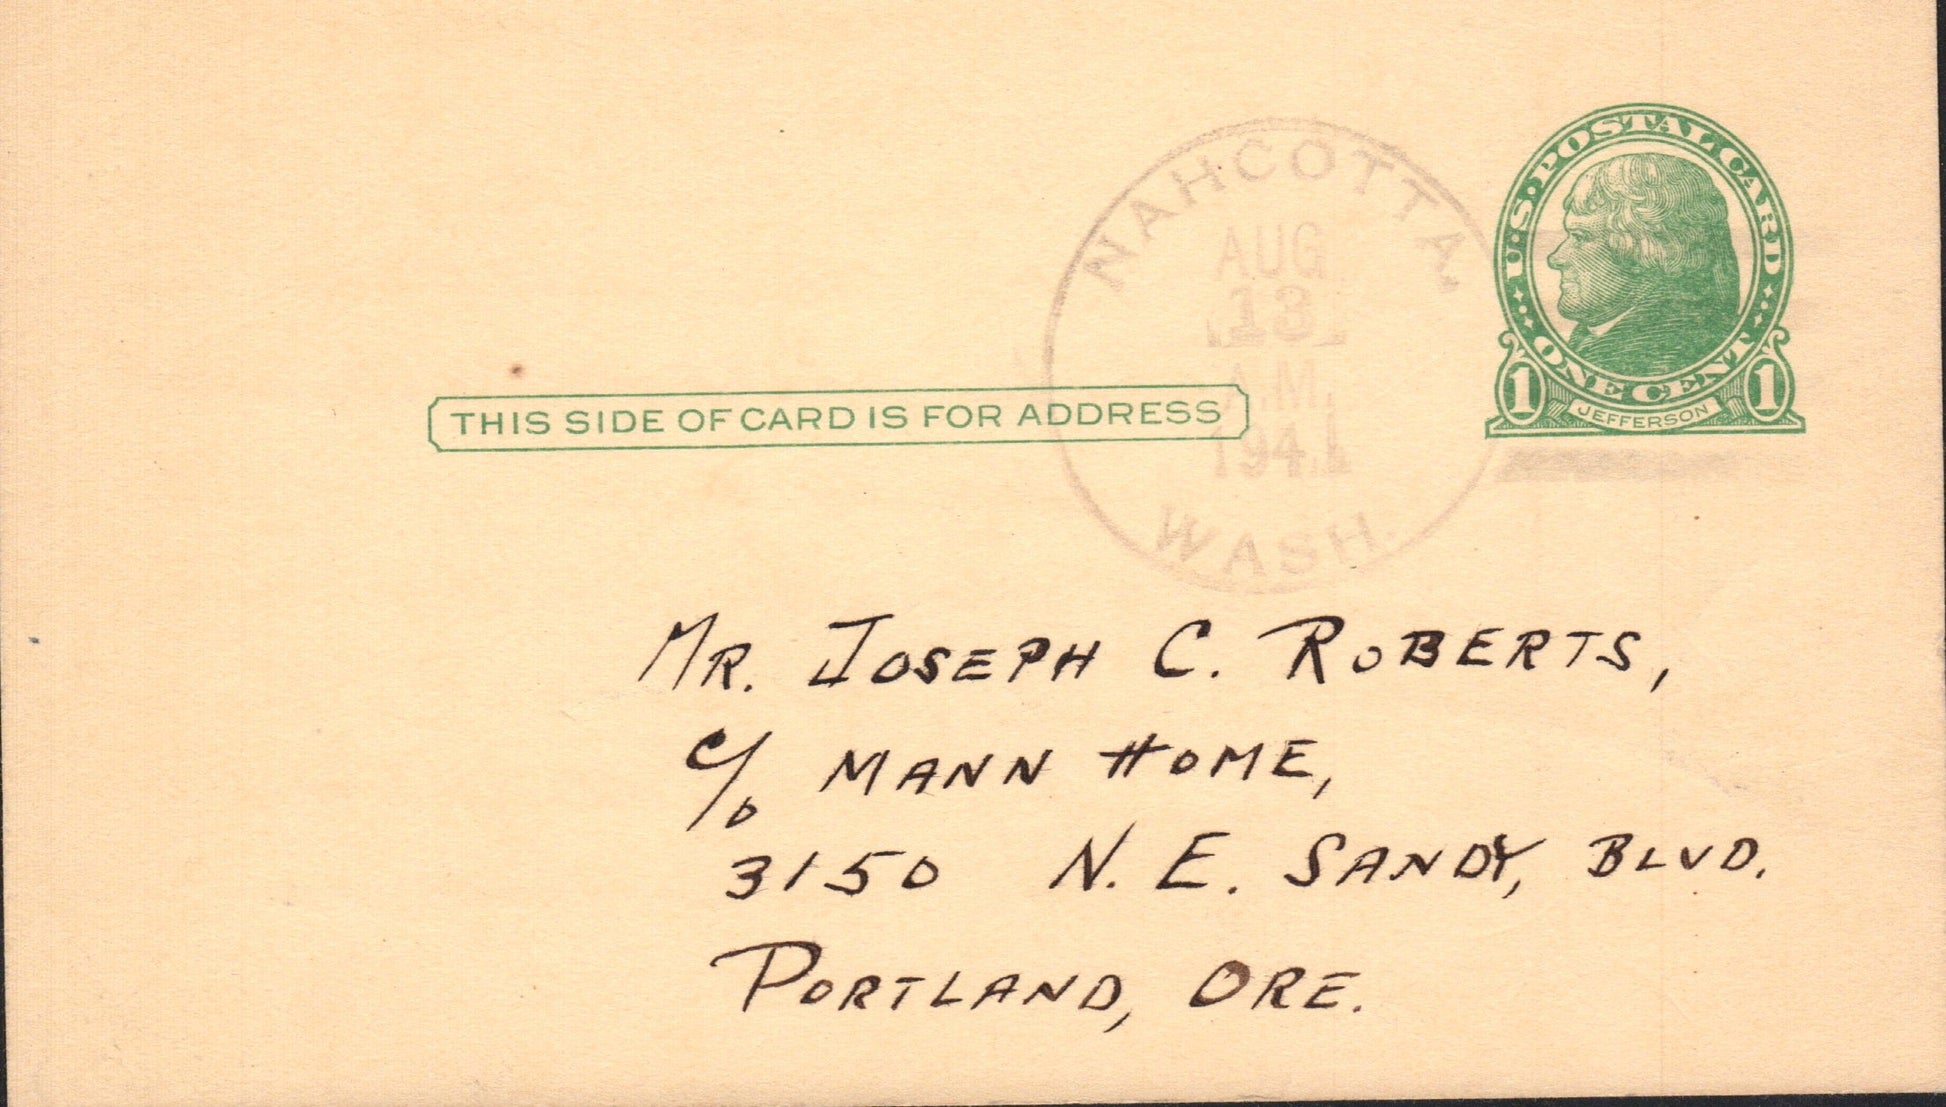 U.S. POSTAL CARD
ONE CENT
1 JEFFERSON 1
NAHCOTTA.
AUG
13
A.M.
1941
WASH.
THIS SIDE OF CARD IS FOR ADDRESS
MR. JOSEPH C. ROBERTS,
c/o MANN HOME,
3150 N. E. SANDY, BLVD.
PORTLAND, ORE.